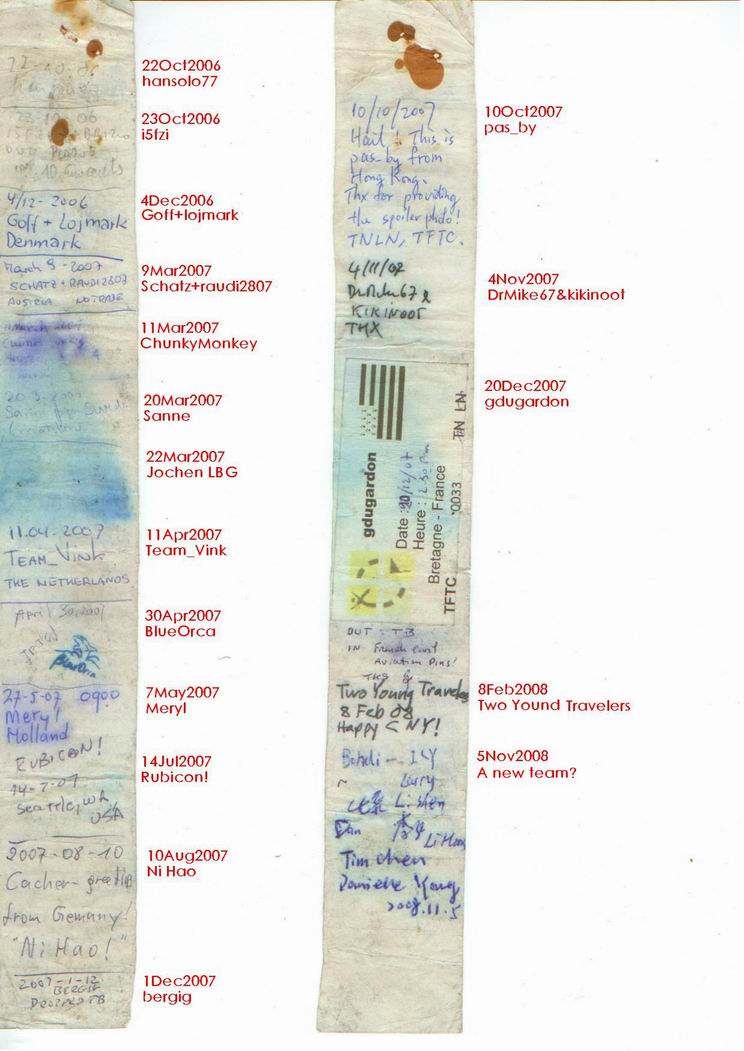 22-10-06
22Oct2006
hansolo77
23-10-06
23Oct2006
i5fzi
4/12-2006
Goff + Lojmark
Denmark
4Dec2006
Goff+lojmark
March 9-2007
SCHATZ + RAUDI2807
AUSTRIA NO TRADE
9Mar2007
Schatz+raudi2807
11Mar2007
ChunkyMonkey
20Mar2007
Sanne
22Mar2007
Jochen LBG
11.04.2007
TEAM_Vink
THE NETHERLANDS
11Apr2007
Team_Vink
April 30, 2007
BlueOrca
30Apr2007
BlueOrca
27-5-07 0900
Mery!
Holland
7May2007
Meryl
RUBICON!
14-7-07
Seattle, WA
USA
14Jul2007
Rubicon!
2007-08-10
Cacher-greetin
from Germany!
"Ni Hao!"
10Aug2007
Ni Hao
2007-1-12
BERGIG
DROPPED TB
1Dec2007
bergig
10/10/2007
Hait! This is
pas_by from
Hong Kong.
Thx for providing
the spoiler photo!
TNLN, TFTC.
10Oct2007
pas_by
4/11/07
DrMike67 &
KIKINOOT
THX
4Nov2007
DrMike67&kikinoot
gdugardon
Date : 20/12/07
Heure : 2.30 Pm
Bretagne - France
TFTC 0033 TN LN
20Dec2007
gdugardon
OUT : TB
IN French
Aviation Pins!
Two Young Travelers
8 Feb 08
Happy CNY!
8Feb2008
Two Yound Travelers
Larry
Li shen
Dan
Tim chen
Danielle Yang
2008.11.5
5Nov2008
A new team?